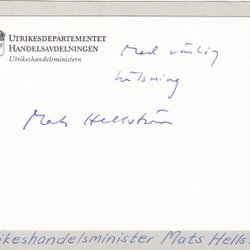 UTRIKESDEPARTEMENTET
HANDELSAVDELNINGEN
Utrikeshandelsministern
Med vänlig
hälsning
Mats Hellström
rikeshandelsminister Mats Hells